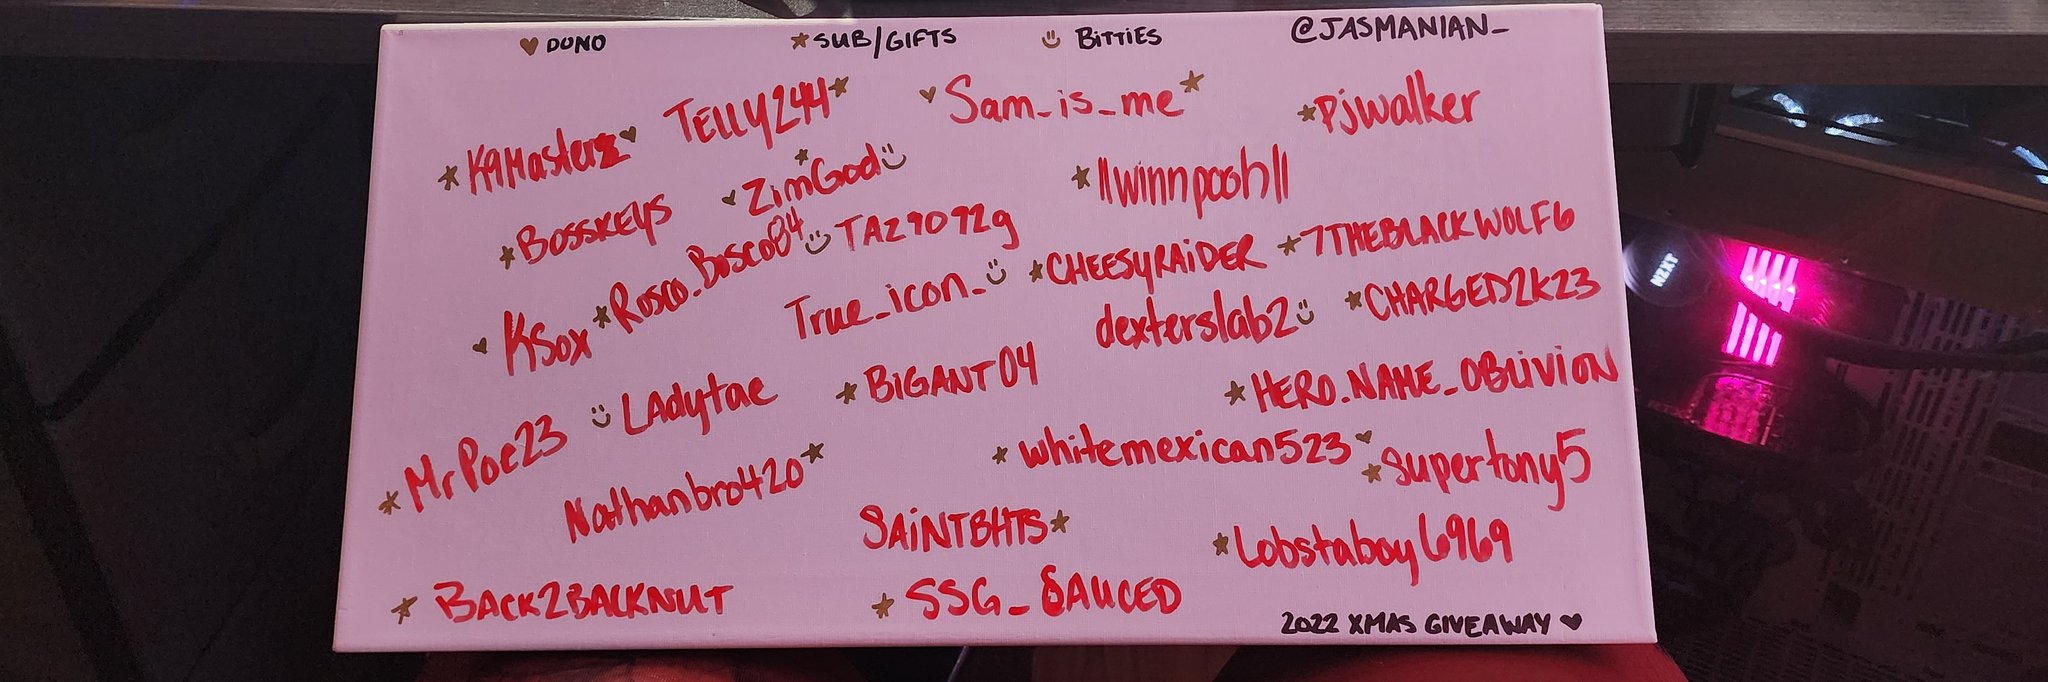 ♥ DONO ★SUB/GIFTS ☺ BiTTiES @JASMANIAN_
★K9Masterz♥ TELLY244★ ♥Sam_is_me★ ★Pjwalker
★BOSSKEYS ♥★ZimGod☺ ★llwinnpoohll
♥KSox ★Rosco_Bosco84☺ TAZ9092g ★CHEESYRAiDER ★7THEBLACKWOLF6
True_icon_☺ dexterslab2☺ ★CHARGED2K23
★MrPoe23 ☺LAdytae ★BIGANT04 ★HERO_NAME_OBLIVION
Nathanbro420★ ★whitemexican523♥ ★supertony5
SAiNTBHTS★ ★Lobstaboy6969
★BACK2BACKNUT ★SSG_SAUCED
2022 XMAS GIVEAWAY ♥
NZXT